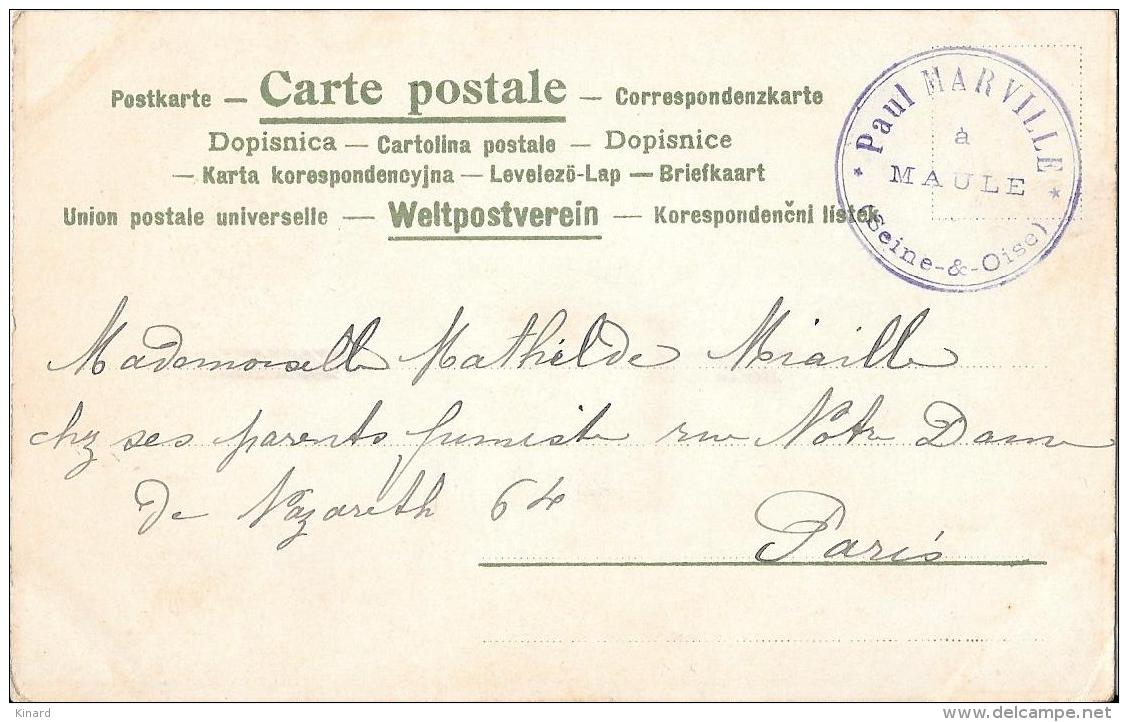 Postkarte – Carte postale – Correspondenzkarte
Dopisnica – Cartolina postale – Dopisnice
– Karta korespondencyjna – Levelező-Lap – Briefkaart
Union postale universelle – Weltpostverein – Korespondenčni listek
* Paul MARVILLE *
à
MAULE
(Seine-&-Oise)
Mademoiselle Mathilde Miaille
chz ses parents fumiste rue Notre Dame
De Nazareth 64
Paris
Kinard
www.delcampe.net